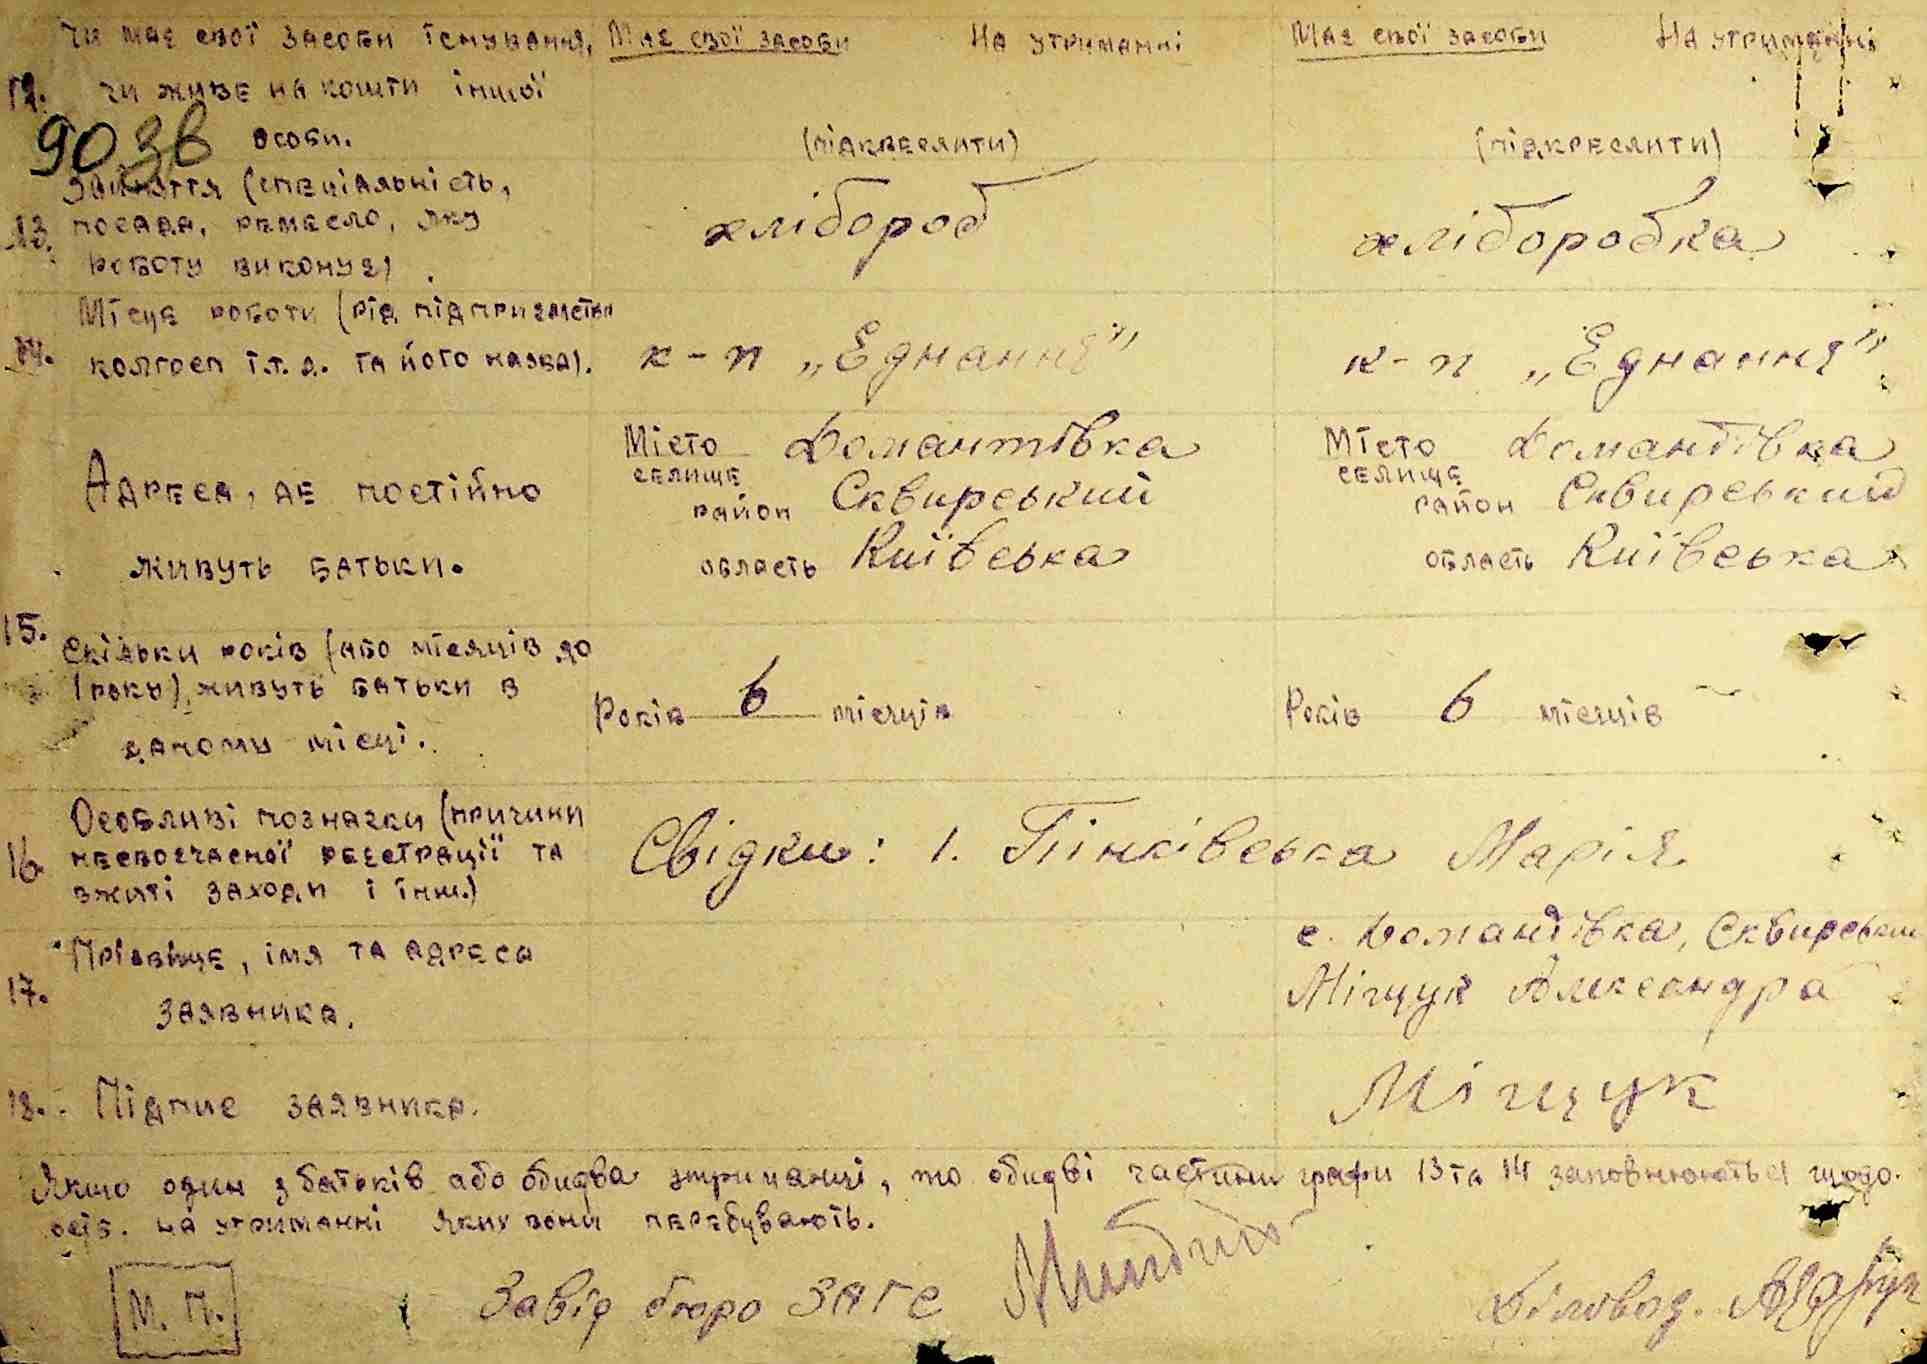 Чи має свої засоби існування, Має свої засоби На утриманні Має свої засоби На утриманні
12. чи живе на кошти іншої
903в особи. (підкреслити) (підкреслити)
Заняття (спеціальність,
13. посада, ремесло, яку хлібороб хліборобка
роботу виконує)
Місце роботи (рід підприємства
14. колгосп і.т.д. та його назва). к-п „Еднання" к-п „Еднання"
Місто Домантівка Місто Домантівка
Адреса, де постійно селище селище
район Сквирський район Сквирський
живуть батьки. область Київська область Київська
15. Скільки років (або місяців до
1 року) живуть батьки в Років 6 місяців Років 6 місяців
даному місці.
Особливі позначки (причини
16. несвоєчасної реєстрації та Свідки: 1. Пінківська Марія
вжиті заходи і інш.)
с. Домантівка, Сквирськи
Прізвище, імя та адреса
17. Міщук Александра
заявника.
18. Підпис заявника. Міщук
Якшо один з батьків або обидва утриманці, то обидві частини графи 13 та 14 заповнюються щодо
осіб. на утриманні яких вони перебувають.
М. П. Завід бюро ЗАГС Діловод.